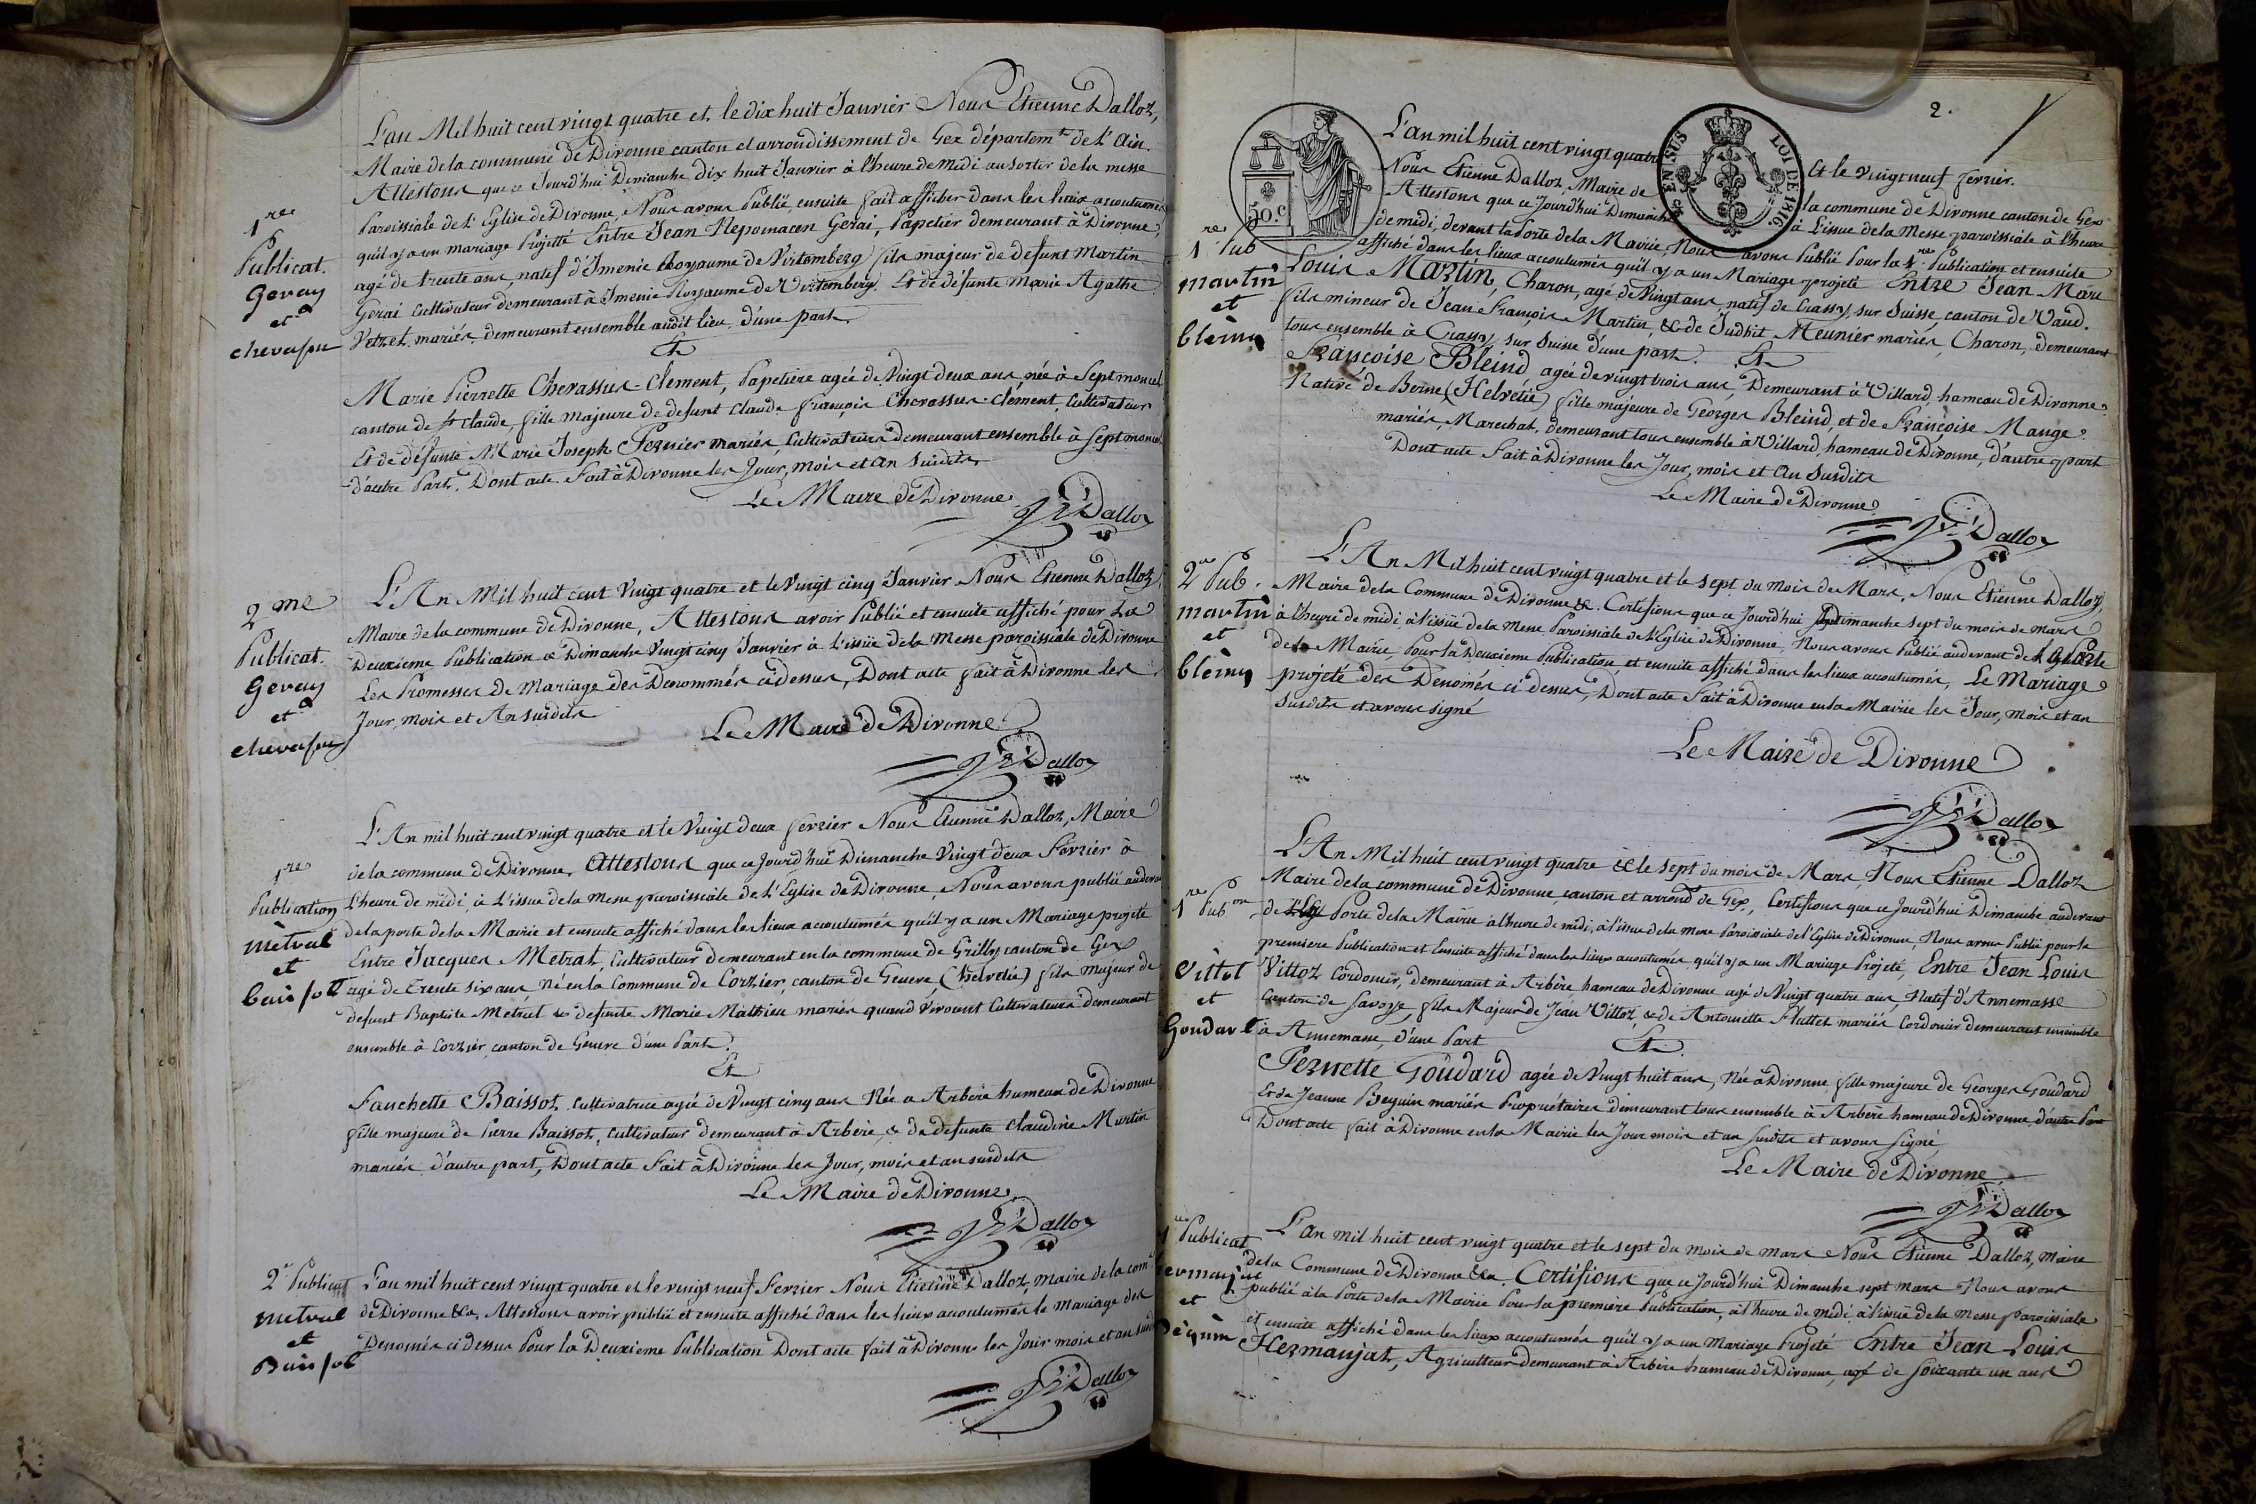 L'an Mil huit cent vingt quatre et le dix huit Janvier Nous Etienne Dalloz,
Maire de la commune de Divonne canton et arrondissement de Gex départemt. de l'Ain.
Attestons que ce Jourd'hui Dimanche dix huit Janvier à l'heure de Midi au sortir de la messe
Paroissiale de l'Eglise de Divonne, Nous avons Publié, ensuite fait afficher dans les lieux accoutumés
qu'il y a un mariage Projetté Entre Jean Nepomacen Gerai, Papetier demeurant à Divonne,
agé de trente ans, natif d'Imenie Royaume de Virtemberg, fils majeur de defunt Martin
Gerai Cultivateur demeurant à Imenie Royaume de Virtemberg. Et de défunte Marie Agathe
Vetzel, mariés, demeurant ensemble audit lieu, d'une part.
1re
Publicat.
Geray
et
chevassu
Et
Marie Pierrette Chevassus-Clement, Papetière agée de Vingt deux ans, née à Septmoncel
canton de St Claude, fille majeure de defunt Claude françois Chevassus-Clément, Cultivateur
Et de défunte Marie Joseph Pernier mariés, Cultivateurs demeurant ensemble à Septmoncel
d'autre Part. Dont acte Fait à Divonne les Jour, mois et an Susdits
Le Maire de Divonne
Dalloz
2me
Publicat.
Geray
et
chevassu
L'An Mil huit cent Vingt quatre et le Vingt cinq Janvier Nous Etienne Dalloz,
Maire de la commune de Divonne, Attestons avoir Publié et ensuite affiché pour la
Deuxieme Publication ce Dimanche Vingt cinq Janvier à l'issüe de la Messe paroissiale de Divonne
Les Promesses de Mariage des Denommés cidessus, Dont acte fait à Divonne les
Jour, mois et An susdits
Le Maire de Divonne
Dalloz
1re
Publication
mètral
et
baissot
L'An mil huit cent vingt quatre et le Vingt deux fevrier Nous Etienne Dalloz, Maire
de la commune de Divonne, Attestons que ce Jourd'hui Dimanche Vingt deux Février à
l'heure de midi, à l'issue de la Messe paroissiale de l'Eglise de Divonne, Nous avons publié audevant
de la porte de la Mairie et ensuite affiché dans les lieux accoutumés qu'il y a un Mariage projeté
Entre Jacques Metral, Cultivateur demeurant en la commune de Grilly canton de Gex
agé de trente six ans Né en la Commune de Corzier, canton de Geneve, (helvetie) fils majeur de
defunt Baptiste Metral & defunte Marie Mathieu mariés quand vivoient Cultivateurs demeurant
ensemble à Corzier canton de Geneve d'une Part.
Et
Fanchette Baissot Cultivatrice agée de Vingt cinq ans Née a Arbère hameau de Divonne
fille majeure de Pierre Baissot, Cultivateur demeurant à Arbère, & de defunte Claudine Martin
mariés d'autre part, Dont acte Fait à Divonne les Jour, mois et an susdits
Le Maire de Divonne
Dalloz
2e Publicat
metral
et
Baissot
L'an mil huit cent vingt quatre et le vingt neuf Fevrier Nous Etienne Dalloz, maire de la com
de Divonne &a, Attestons avoir publié et ensuite affiché dans les lieux accoutumés le mariage des
Denomés ci dessus Pour la Deuxieme Publication Dont acte fait à Divonne les Jour mois et an susd
Dalloz
2.
50.c
EN SUS LOI DE 1816
L'an mil huit cent vingt quatre Et le vingt neuf fevrier.
Nous Etienne Dalloz, Maire de la commune de Divonne canton de Gex
Attestons que ce Jourd'hui Dimanche à l'issue de la Messe paroissiale à l'heure
de midi, devant la Porte de la Mairie, Nous avons Publié Pour la 1re. Publication et ensuite
affiché dans les lieux accoutumés qu'il y a un Mariage projeté Entre Jean Marc
Louis Martin, Charon, agé de Vingt ans, natif de Crassy, sur Suisse, canton de Vaud.
fils mineur de Jean François Martin, & de Judhit Meunier mariés, Charon, demeurant
tous ensemble à Crassy, sur Suisse d'une part. Et
1re Pub
martin
et
blèind
Françoise Bleind agée de vingt trois ans, Demeurant à Villard, hameau de Divonne
Native de Berne (Helvétie) fille majeure de Georges Bleind, et de Françoise Mange
mariés, Marechal, demeurant tous ensemble à Villard, hameau de Divonne, d'autre part
Dont acte Fait à Divonne les Jour, mois et an Susdits
Le Maire de Divonne
Dalloz
2e Pub.
martin
et
blèind
L'An Mil huit cent vingt quatre et le sept du mois de Mars, Nous Etienne Dalloz,
Maire de la Commune de Divonne &. Certifions que ce Jourd'hui Dimanche sept du mois de mars
à l'heure de midi, à l'issüe de la Messe Paroissiale de l'Eglise de Divonne, Nous avons Publié audevant de la Porte
de la Mairie, Pour la Deuxieme Publication, et ensuite affiché dans les lieux accoutumés, Le Mariage
projeté des Denomés ci dessus, Dont acte Fait à Divonne en la Mairie les Jour, mois et an
susdits et avons signé
Le Maire de Divonne
Dalloz
1re Pubon
Vittot
et
Goudart
L'An Mil huit cent vingt quatre & le sept du mois de Mars, Nous Etienne Dalloz
Maire de la commune de Divonne canton et arrondt de Gex, Certifions que ce Jourd'hui Dimanche audevant
de Porte de la Mairie à l'heure de midi, à l'issue de la Messe Paroissiale de l'Eglise de Divonne, Nous avons Publié pour la
premiere Publication et Ensuite affiché dans les lieux accoutumés, qu'il y a un Mariage Projeté, Entre Jean Louis
Vittoz Cordonier, demeurant à Arbère hameau de Divonne agé de Vingt quatre ans, Natif d'Annemasse
Canton de Savoye, fils Majeur de Jean Vittoz, & de Antoinette Fluttet mariés, Cordonier demeurant ensemble
à Annemasse, d'une Part
Et
Pernette Goudard agée de Vingt huit ans, Née à Divonne fille majeure de Georges Goudard
Et de Jeanne Beguin mariés Propriétaires demeurant tous ensemble à Arbère hameau de Divonne d'autre Part
Dont acte fait à Divonne en la Mairie les Jour mois et an susdits et avons Signé
Le Maire de Divonne
Dalloz
Publicat
et
L'an mil huit cent vingt quatre et le sept du mois de mars Nous Etienne Dalloz, Maire
de la Commune de Divonne &a. Certifions que ce Jourd'hui Dimanche sept mars Nous avons
publié à la Porte de la Mairie Pour la première Publication, à l'heure de midi à l'issüe de la Messe paroissiale
et ensuite affiché dans les lieux accoutumés qu'il y a un Mariage Projeté Entre Jean Louis
Hermanjat, Agriculteur demeurant à Arbère hameau de Divonne, agé de soixante un ans